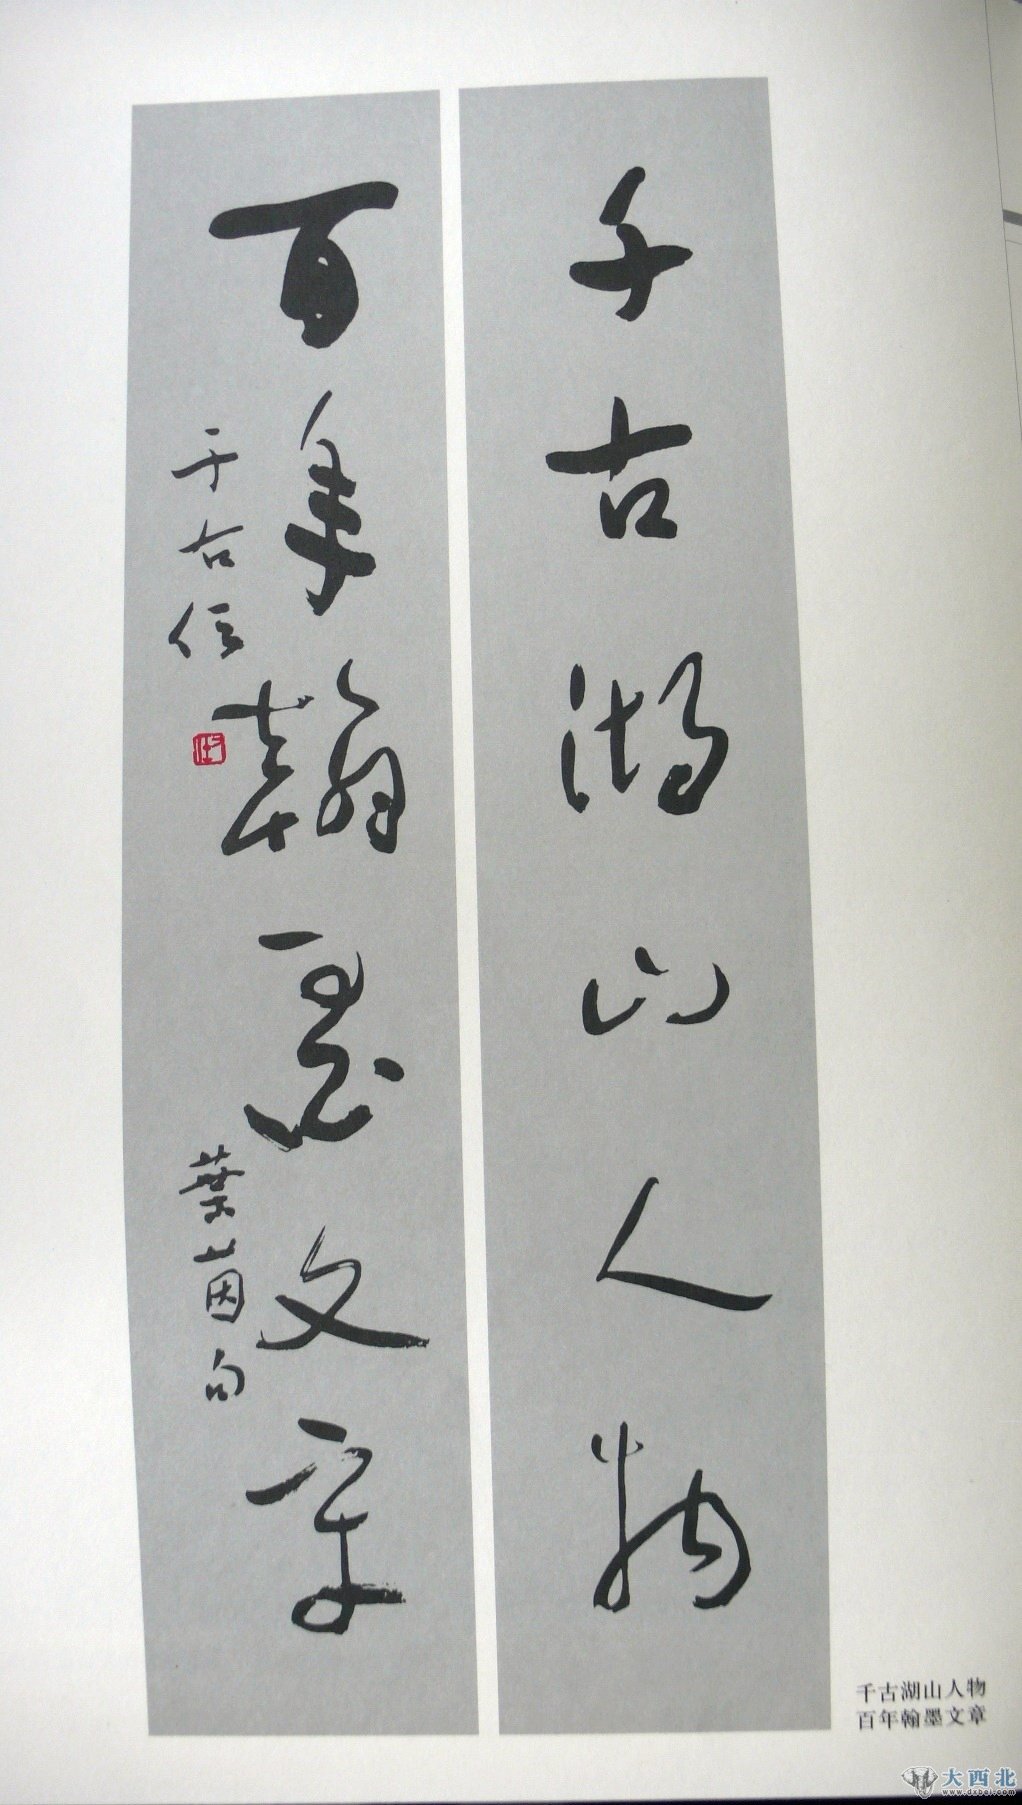 千古湖山人物
百年翰墨文章
葉茵句
于右任
千古湖山人物
百年翰墨文章
大西北
www.dxbei.com